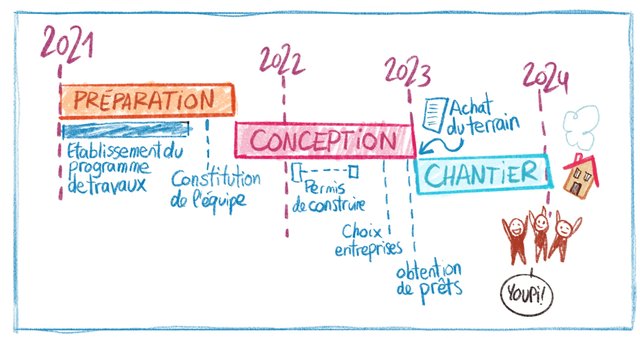 2021
2022
2023
2024
PRÉPARATION
CONCEPTION
Achat
du terrain
CHANTIER
Etablissement du
programme
de travaux
Constitution
de l'équipe
Permis
de construire
Choix
entreprises
obtention
de prêts
YOUPI!